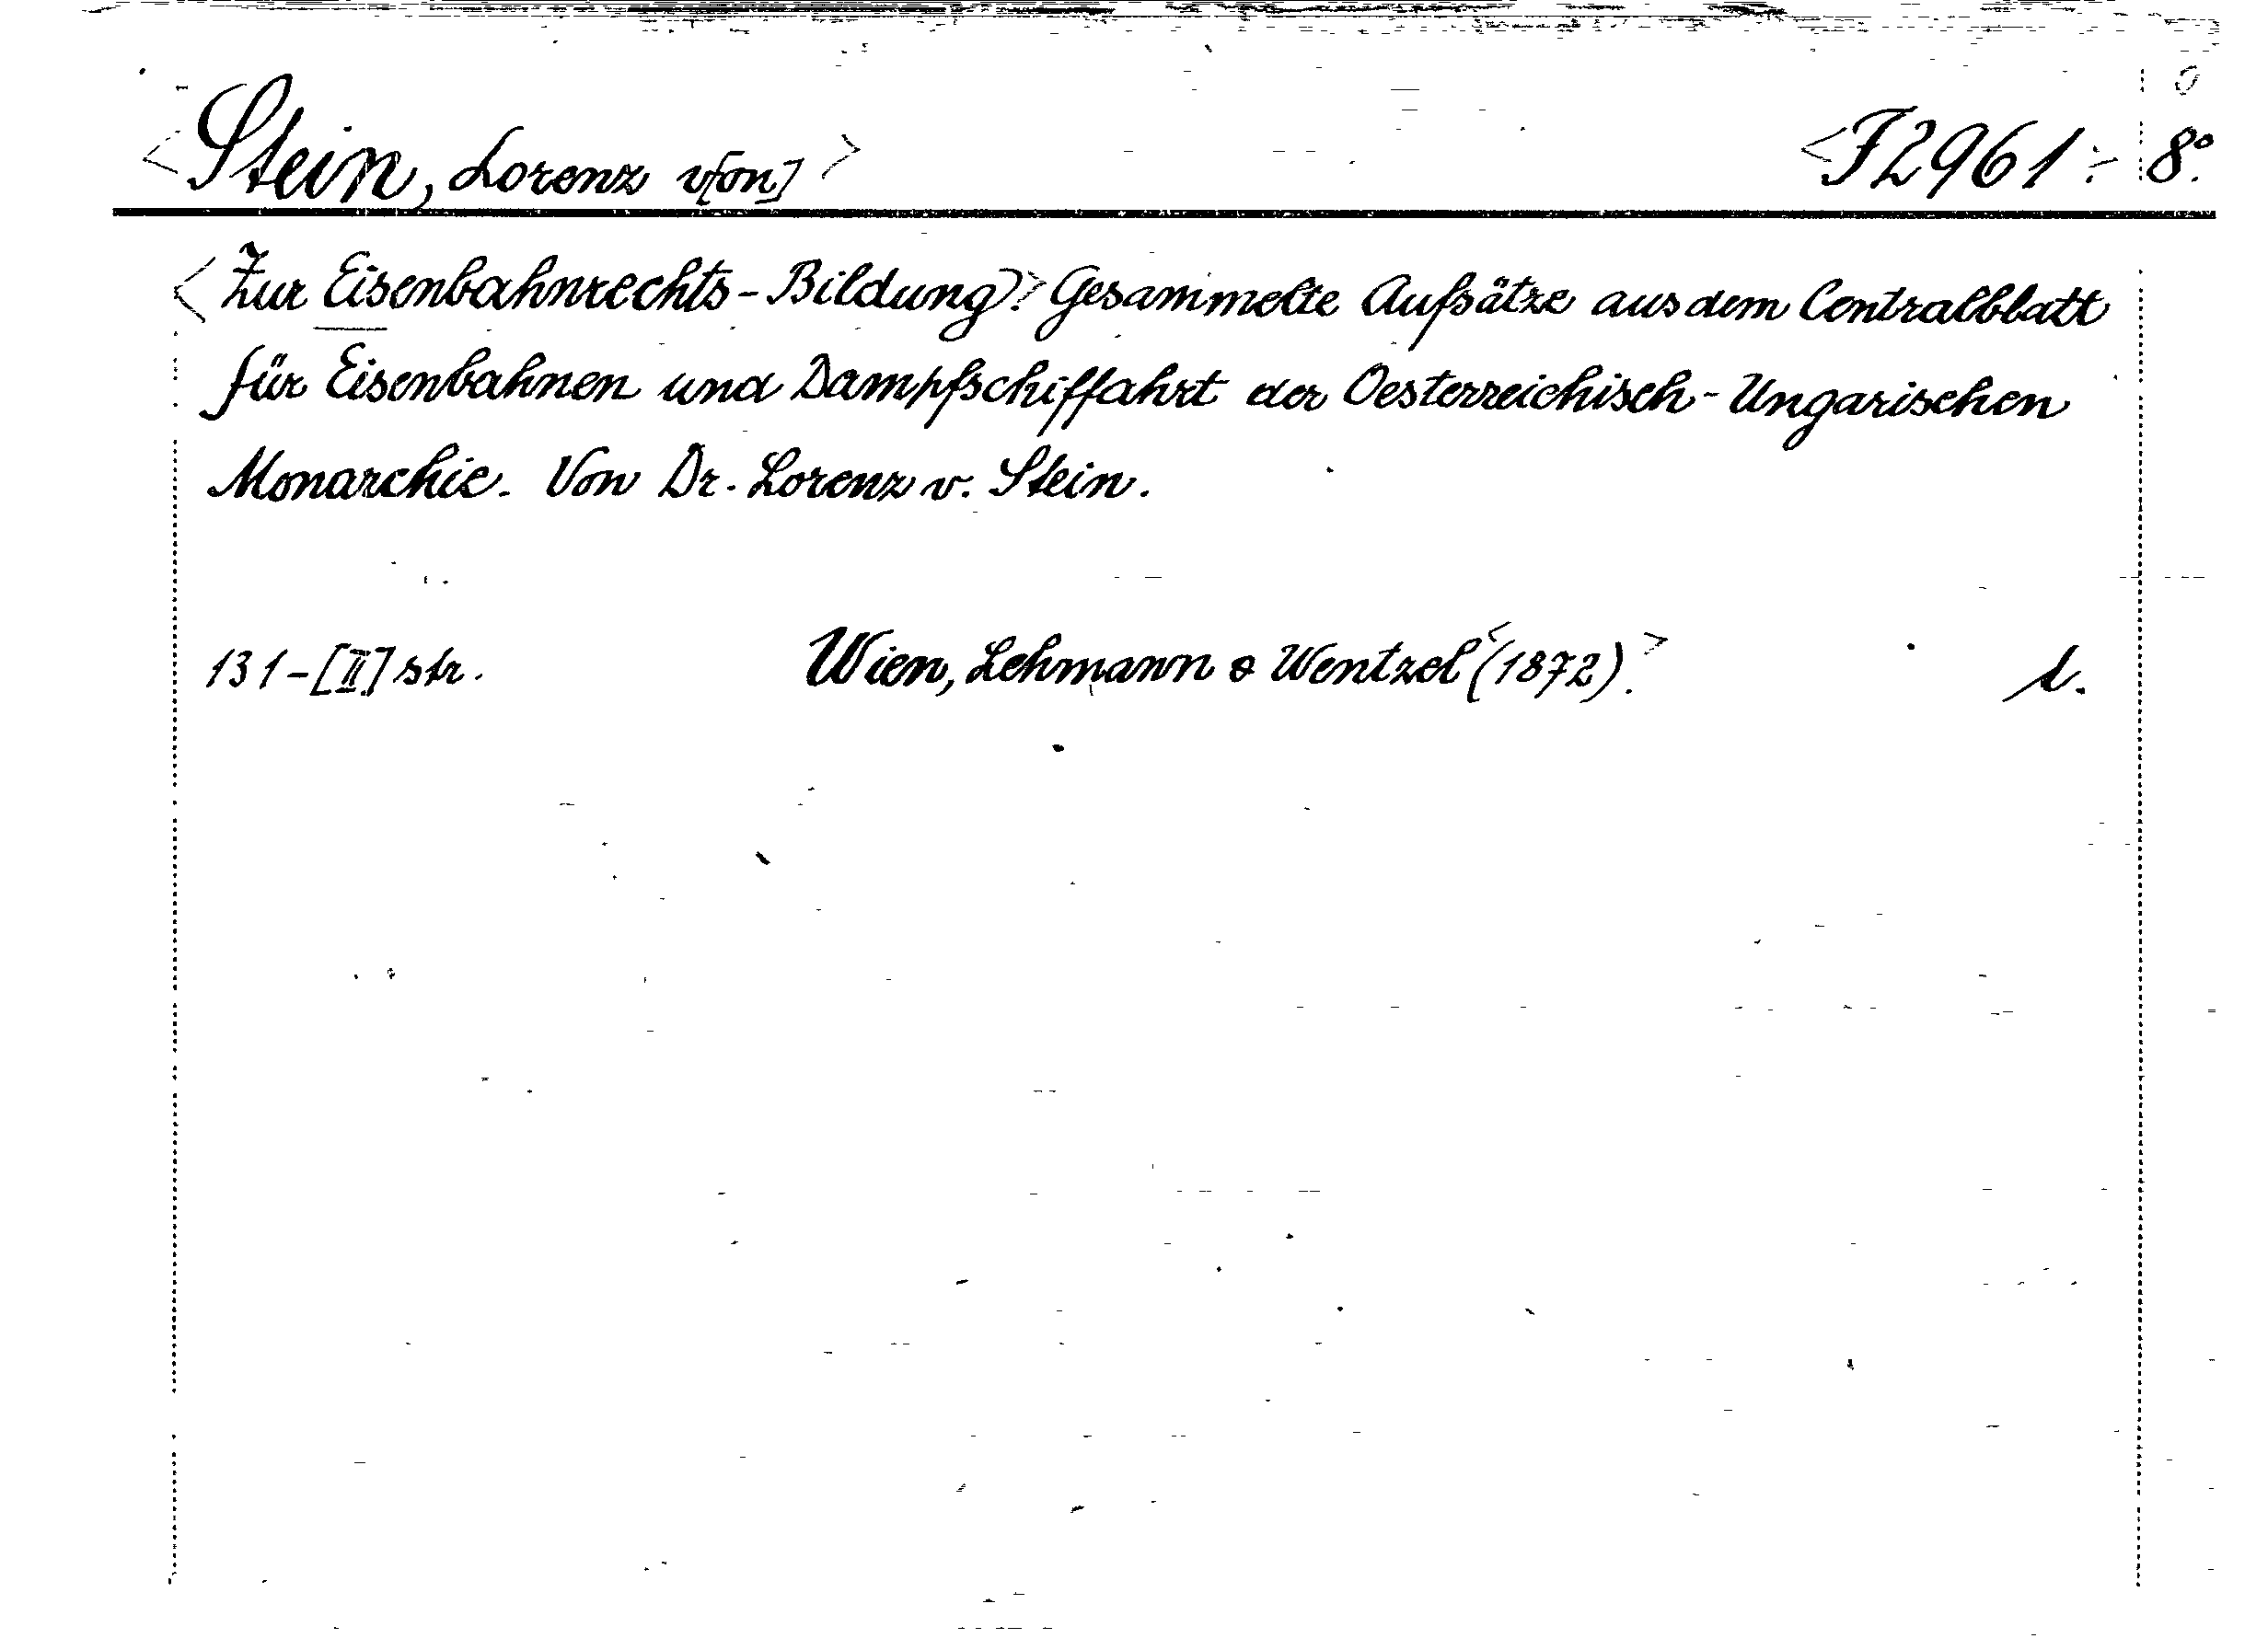 <Stein, Lorenz v[on]> <I2961÷ 8°.
<Zur Eisenbahnrechts-Bildung.> Gesammelte Aufsätze aus dem Centralblatt
für Eisenbahnen und Dampfschiffahrt der Oesterreichisch-Ungarischen
Monarchie. Von Dr. Lorenz v. Stein.
131-[II] str. Wien, Lehmann & Wentzel <(1872).>